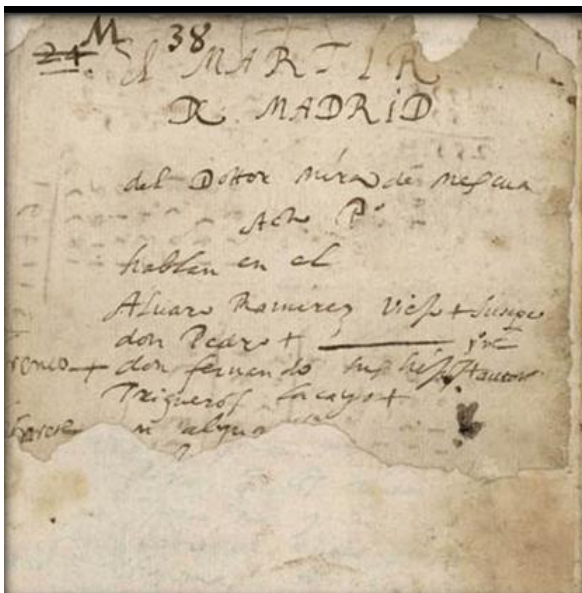 24 M 38
El MARTIR
DE MADRID
del Dottor Mira de Mescua
Acto Pº
hablan en el
Alvaro Ramirez viejo +
don Pedro +
don fernando su hijo +
Trigueros lacayo +
un algua